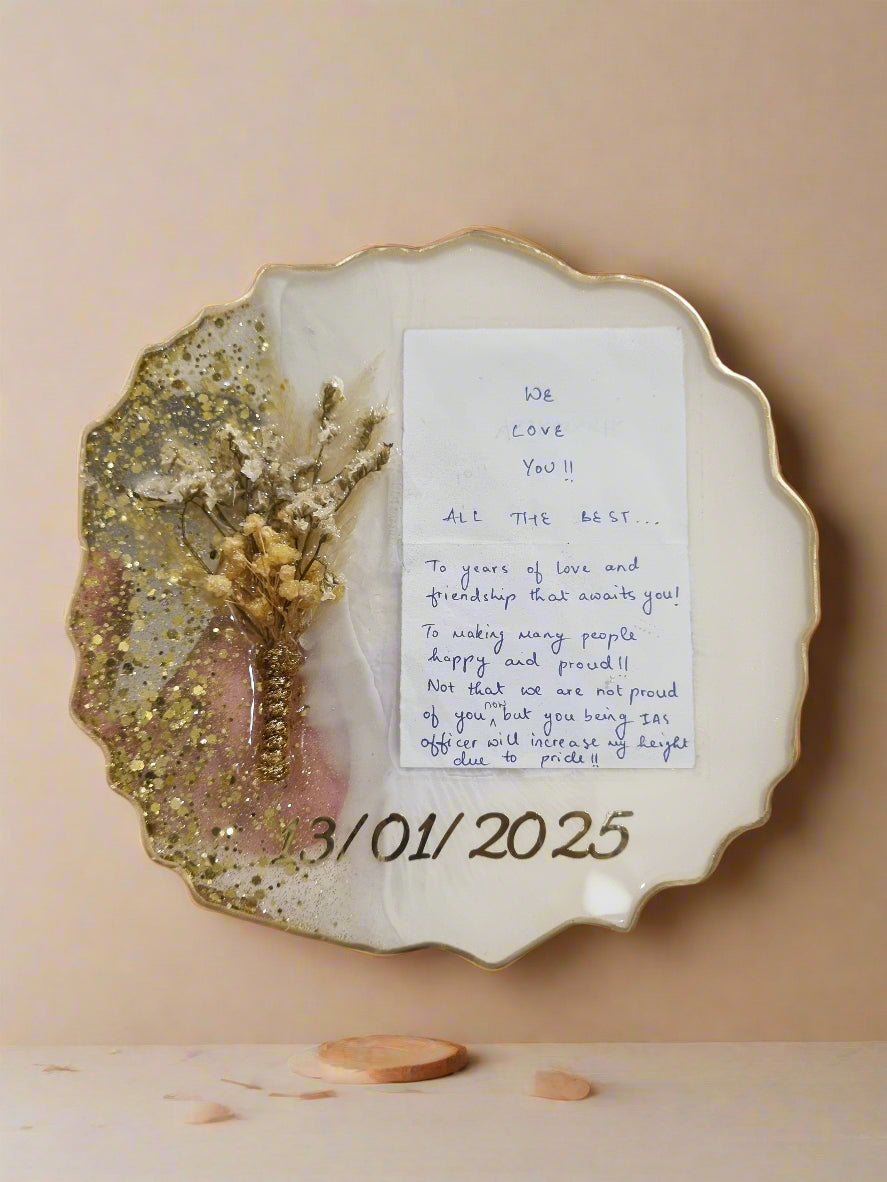 WE
LOVE
YOU !!
ALL THE BEST...
To years of love and
friendship that awaits you!
To making many people
happy and proud!!
Not that we are not proud
of you now but you being IAS
officer will increase my height
due to pride!!
13/01/2025